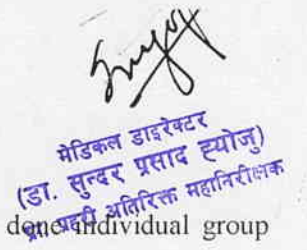 मेडिकल डाइरेक्टर
(डा. सुन्दर प्रसाद ह्योजु)
प्रहरी अतिरिक्त महानिरीक्षक
done individual group